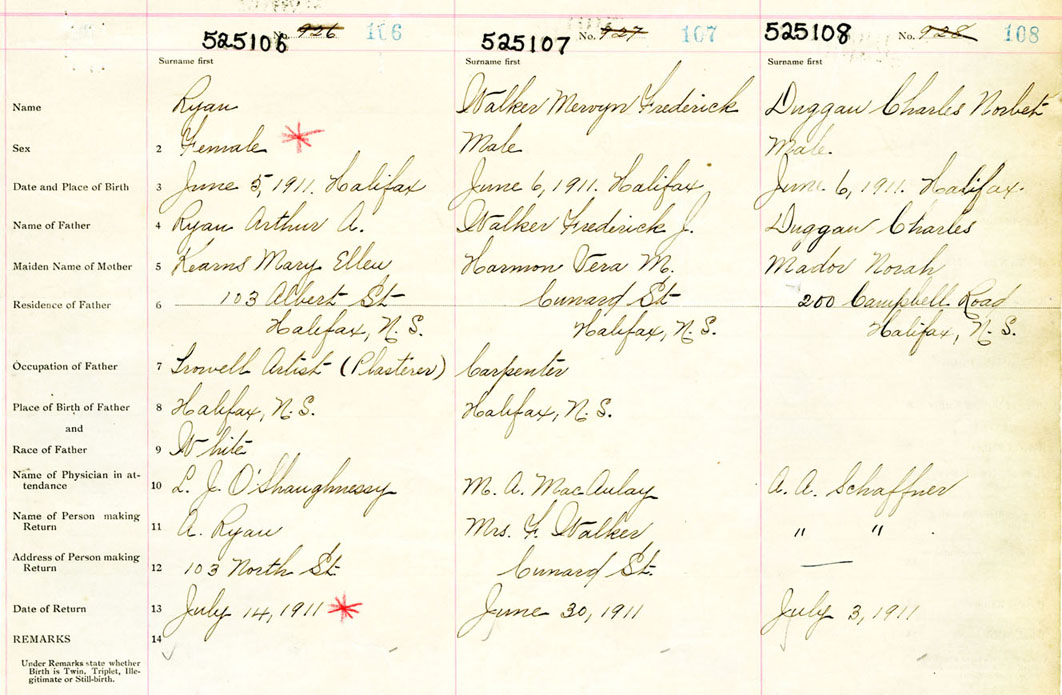 525106 No. 926 106 525107 No. 927 107 525108 No. 928 108
Surname first Surname first Surname first
Name Ryan Walker Mervyn Frederick Duggan Charles Norbet
Sex 2 Female Male Male.
Date and Place of Birth 3 June 5, 1911. Halifax June 6, 1911. Halifax June 6, 1911. Halifax.
Name of Father 4 Ryan Arthur A. Walker Frederick J. Duggan Charles
Maiden Name of Mother 5 Kearns Mary Ellen Harmon Vera M. Mador Norah
Residence of Father 6 103 Albert St Cunard St 200 Campbell Road
Halifax, N. S. Halifax, N. S. Halifax, N. S.
Occupation of Father 7 Trowell Artist (Plasterer) Carpenter
Place of Birth of Father 8 Halifax, N. S. Halifax, N. S.
and
Race of Father 9 White
Name of Physician in at-
tendance 10 L. J. O'Shaughnessy M. A. MacAulay A. A. Schaffner
Name of Person making
Return 11 A. Ryan Mrs. F. Walker " "
Address of Person making
Return 12 103 North St. Cunard St. —
Date of Return 13 July 14, 1911 June 30, 1911 July 3, 1911
REMARKS 14
Under Remarks state whether
Birth is Twin, Triplet, Ille-
gitimate or Still-birth.